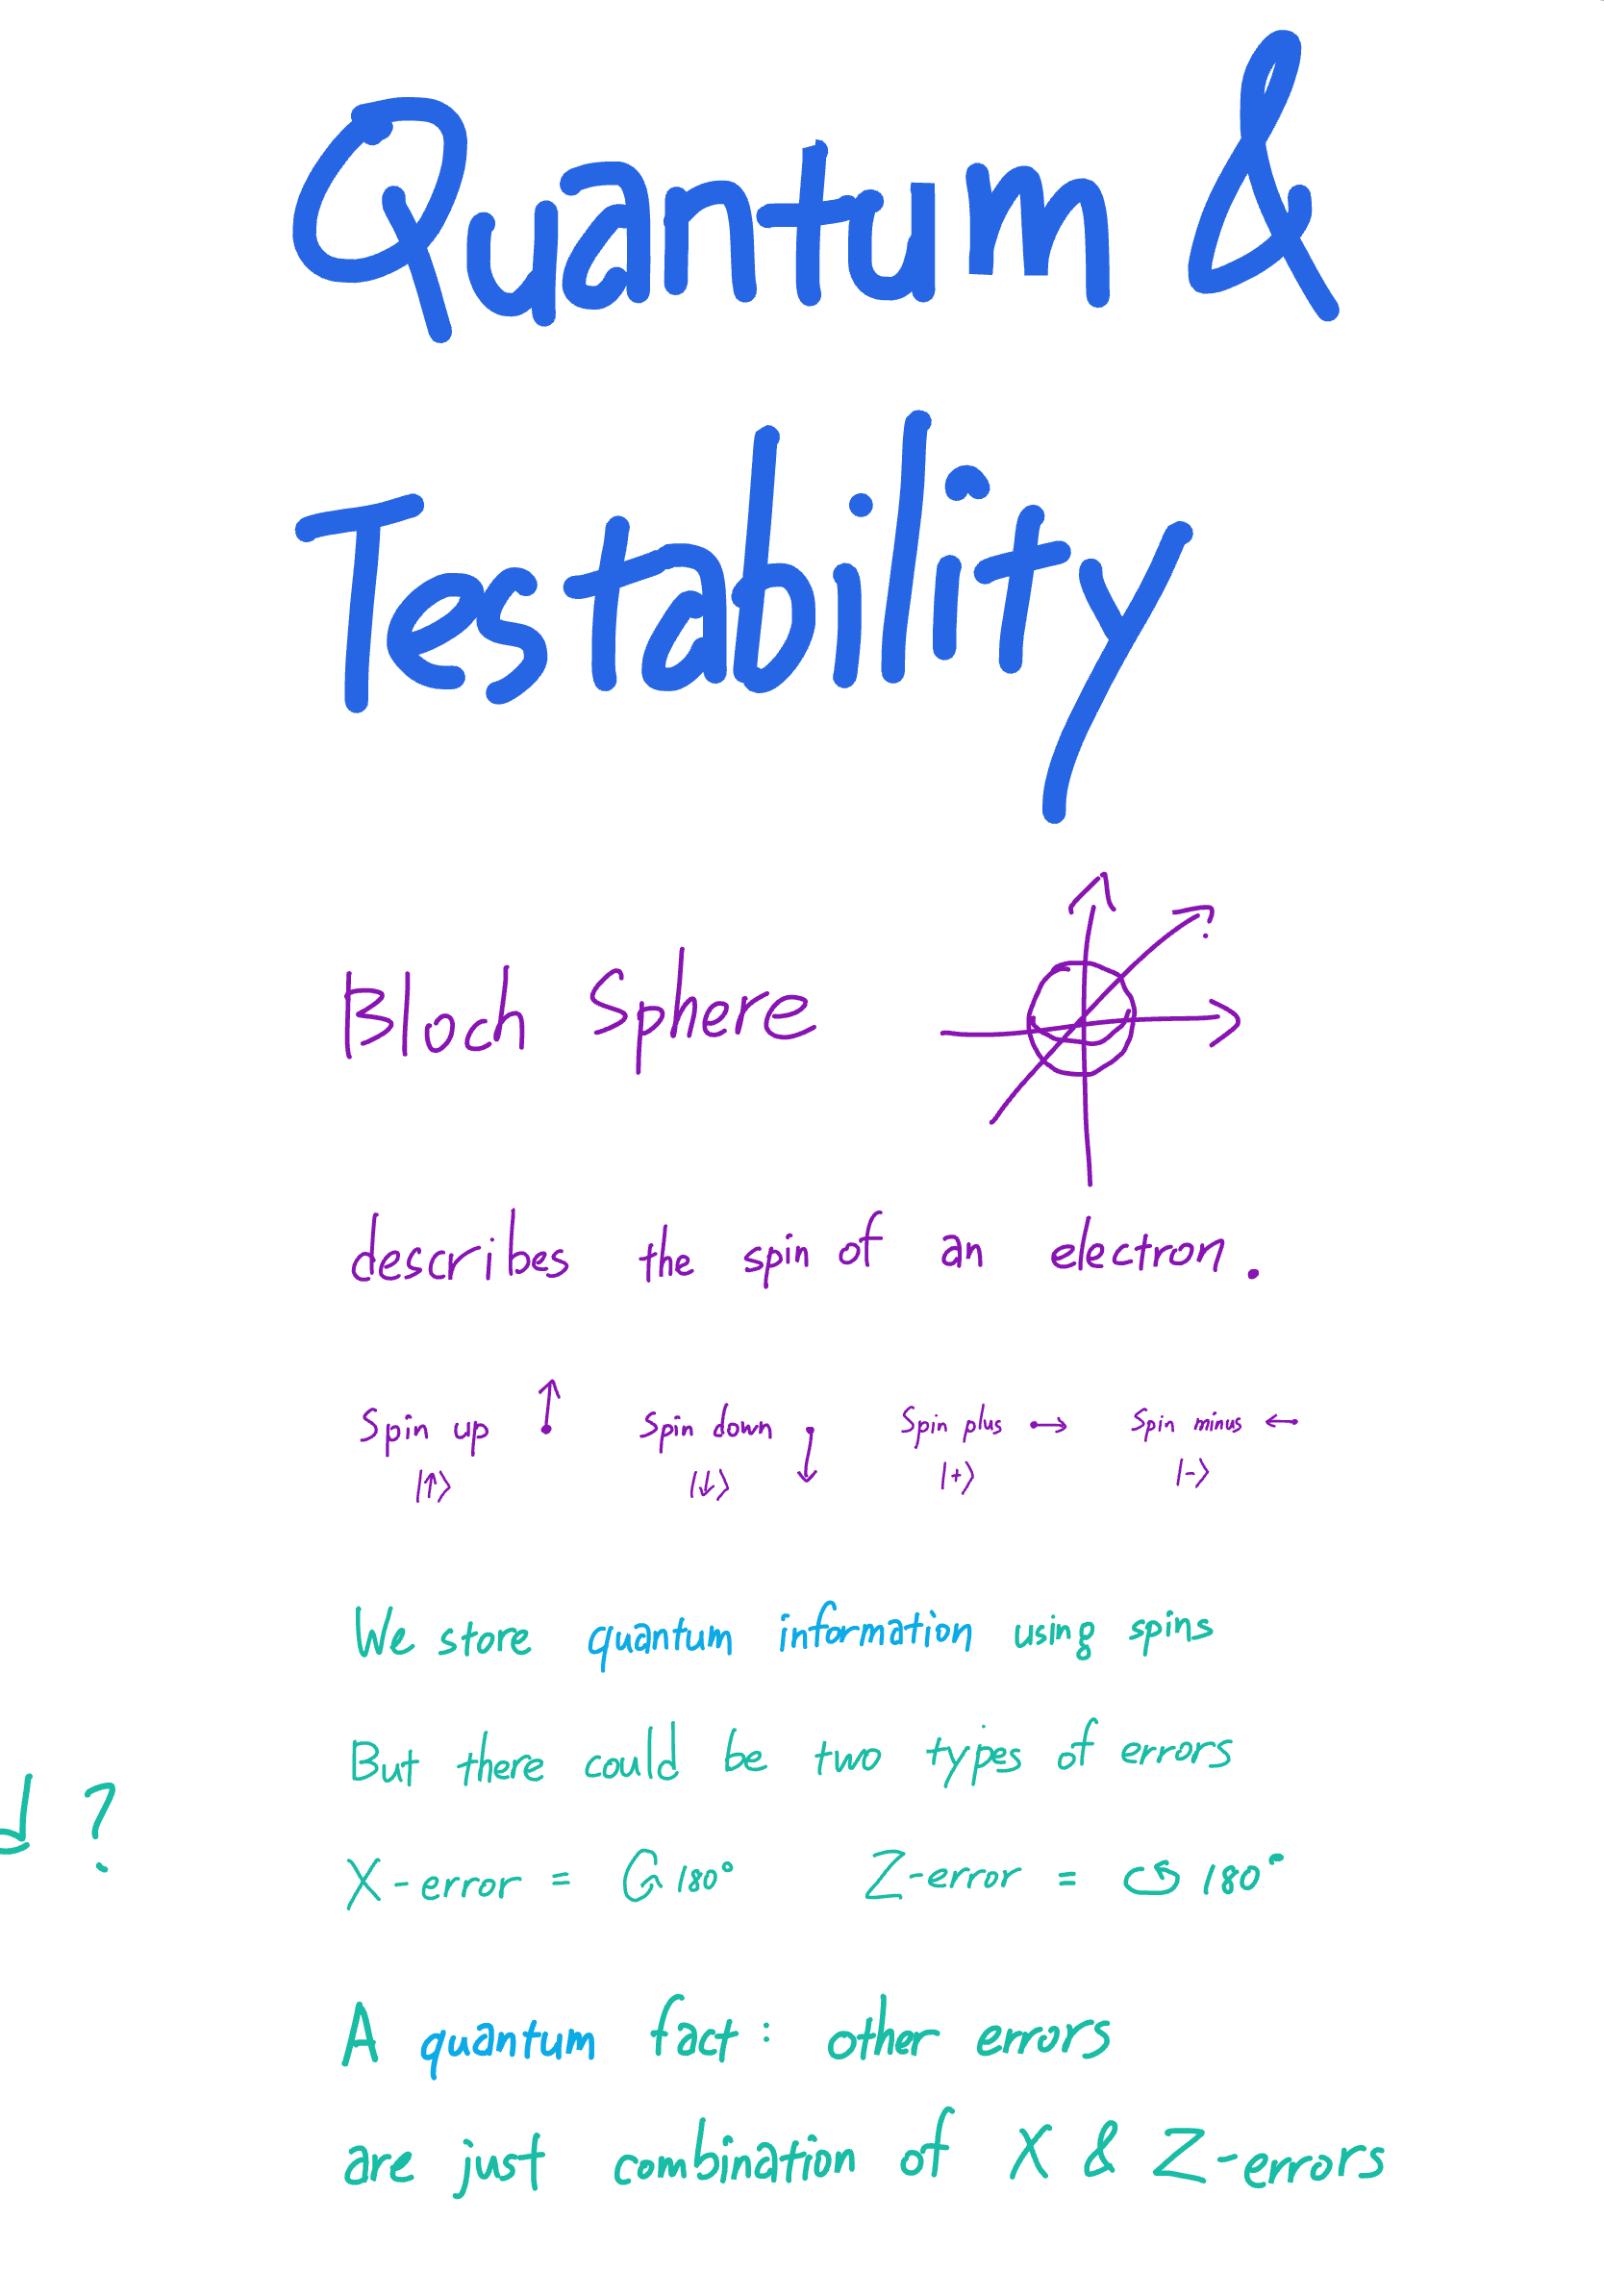 Quantum &
Testability
Bloch Sphere
describes the spin of an electron.
Spin up ↑ Spin down ↓ Spin plus → Spin minus ←
|↑⟩ |↓⟩ |+⟩ |-⟩
We store quantum information using spins
But there could be two types of errors
?
X-error = 180° Z-error = 180°
A quantum fact: other errors
are just combination of X & Z-errors